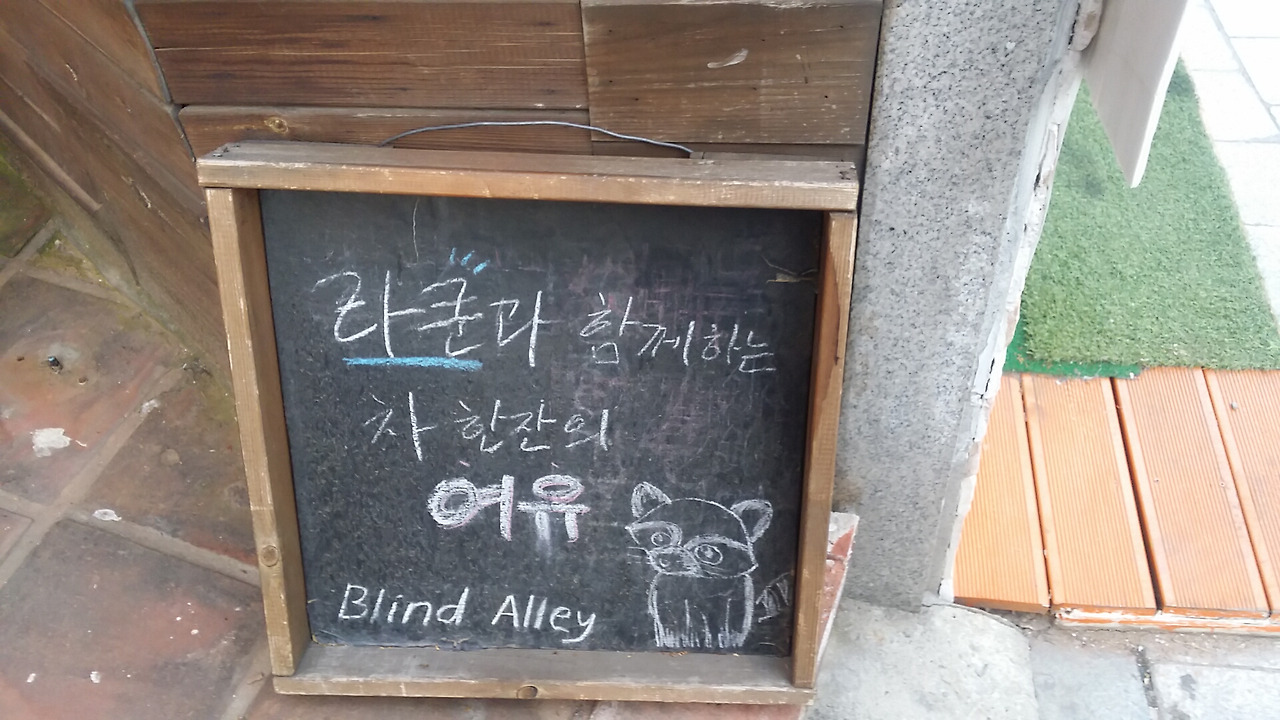 라쿤과 함께하는
차 한잔의
여유
Blind Alley